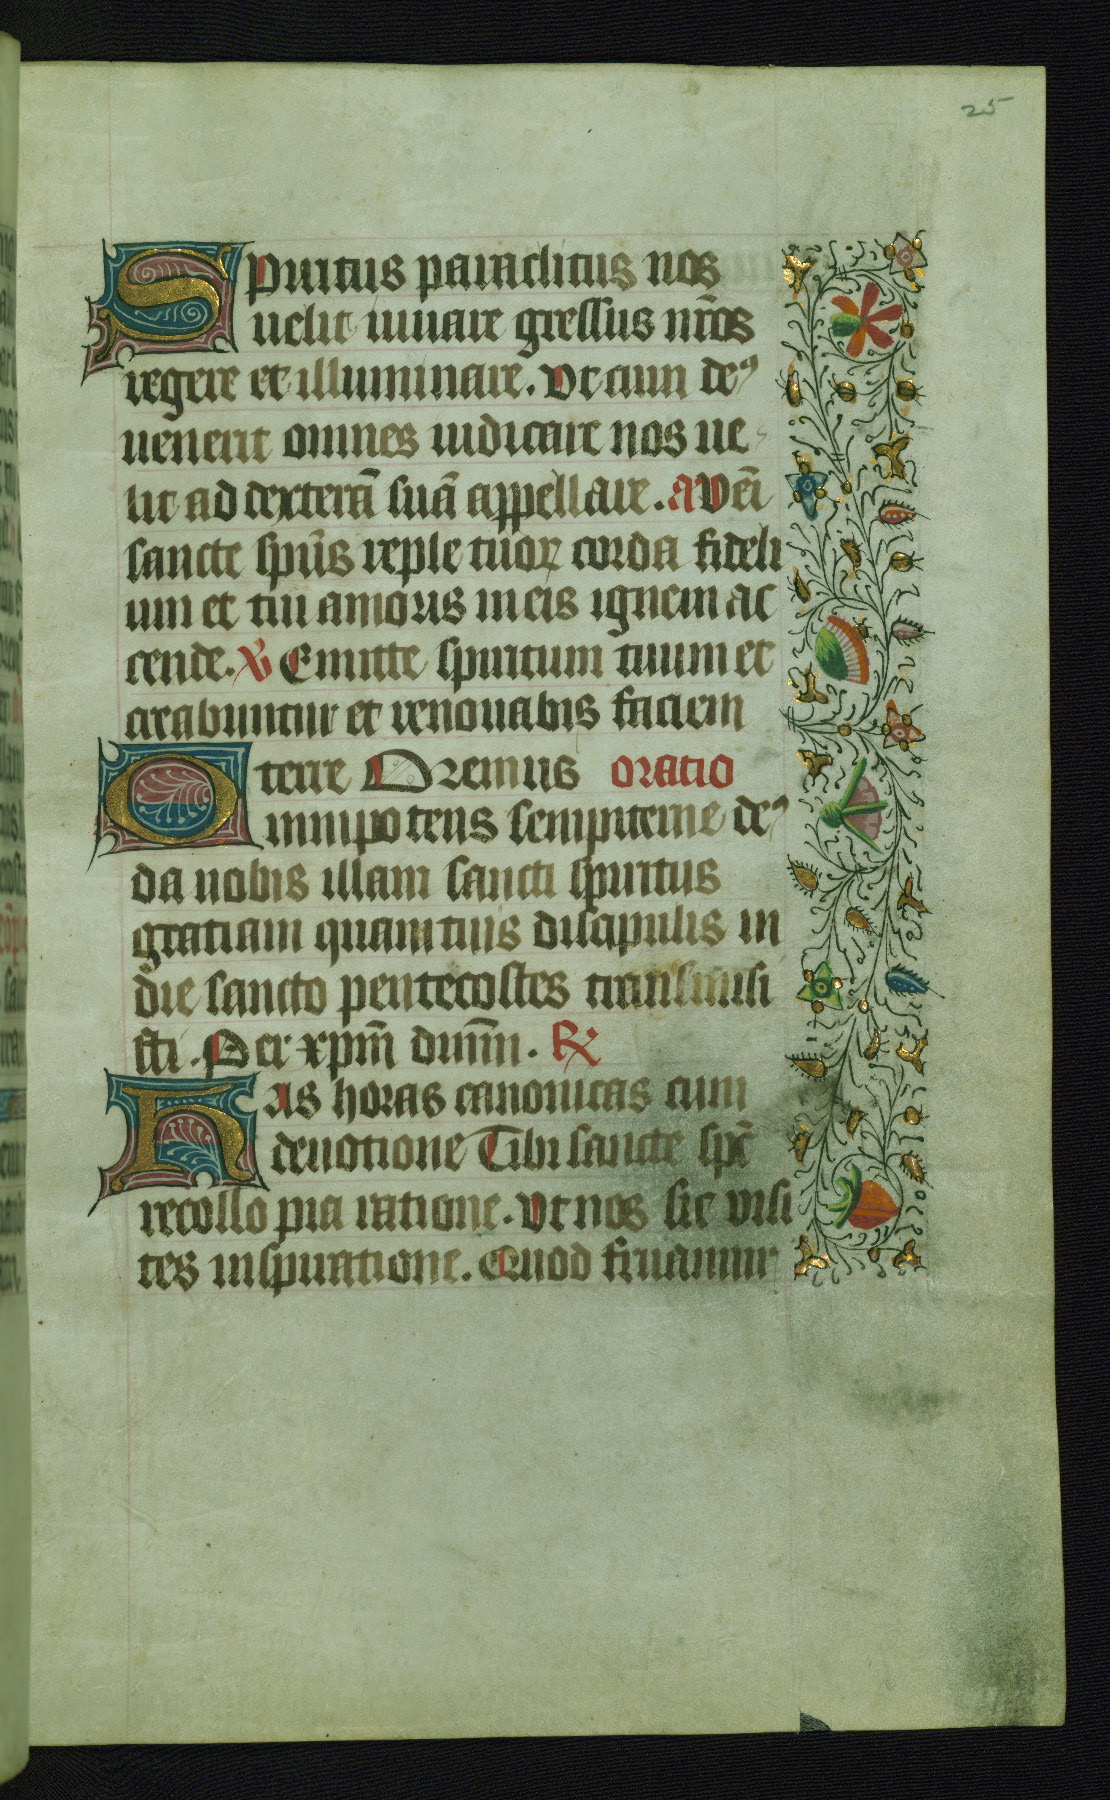 25
Spiritus paraclitus nos
uelit iuuare gressus nr̄os
regere et illuminare. Vt cum deꝰ
uenerit omnes iudicare nos ue
lit ad dexterā suā appellare. a Veī
sancte spūs reple tuoꝝ corda fideli
um et tui amoris in eis ignem ac
cende. V̷ Emitte spiritum tuum et
creabuntur et renouabis faciem
terre Oremus oratio
Omnipotens sempiterne deꝰ
da nobis illam sancti spiritus
gratiam quam tuis discipulis in
die sancto pentecostes transmisi
sti. Per xpm̄ dnm̄. ℟
Has horas canonicas cum
deuotione Tibi sancte spc̄
recollo pia ratione. Vt nos sic visi
tes inspiratione. Quod fruamur